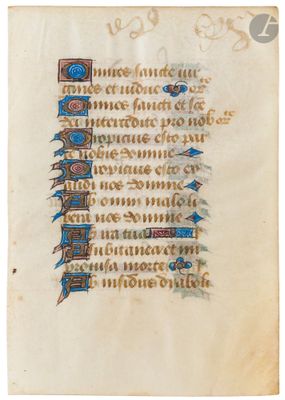 Omnes sancte vir
gines et vidue or
Omnes sancti et sce
dei intercedite pro nob or
Propicius esto par
ce nobis domine
Propicius esto ex
audi nos domine
Ab omni malo li
bera nos domine
Ab ira tua
A subitanea et im
provisa morte
Ab insidiis dyaboli